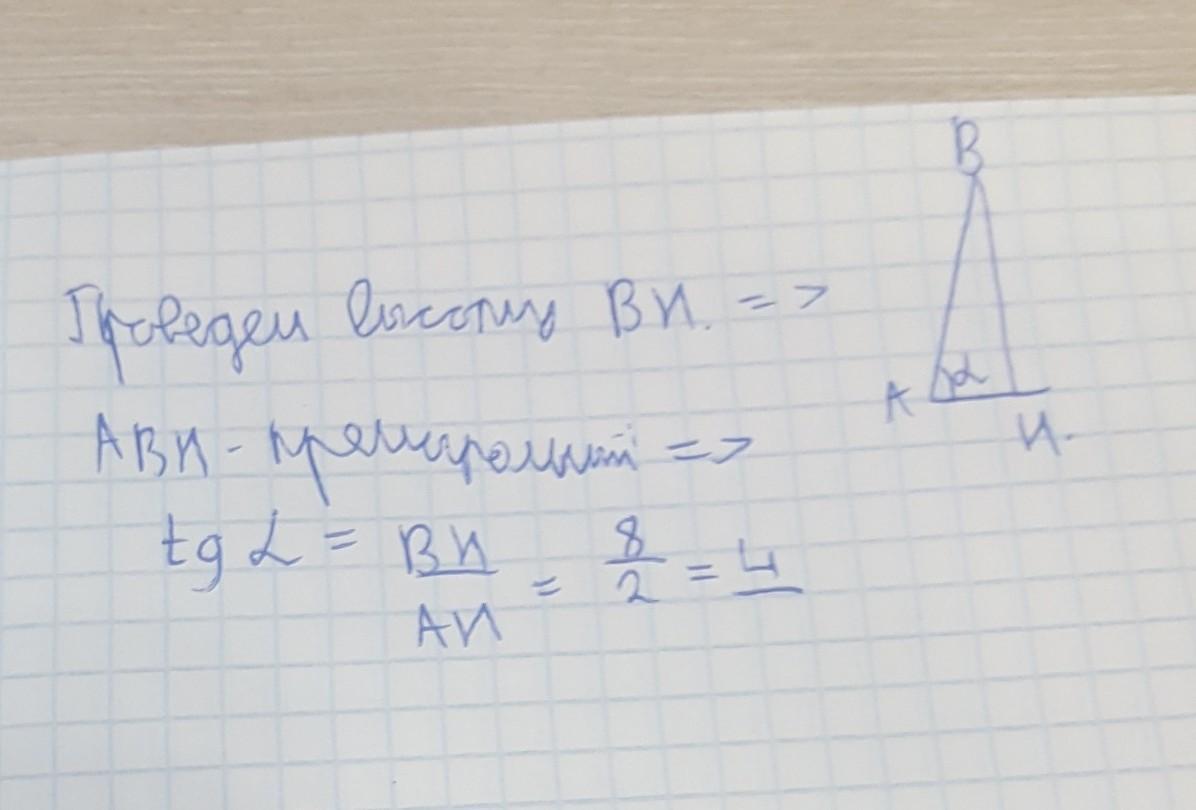 B
Проведем высоту BH. =>
A α H.
ABH - прямоугольный =>
tg α = BH / AH = 8 / 2 = 4